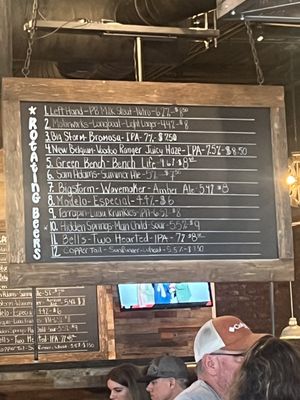 ★ Rotating Beers
1. Left Hand - PB Milk Stout - Nitro - 6.2% - $8.50
2. Motorworks - Longboat - Light Lager - 4.4% - $8
3. Big Storm - Bromosa - IPA - 7% - $7.50
4. New Belgium - Voodoo Ranger Juicy Haze - IPA - 7.5% - $8.50
5. Green Bench - Bench Life 4.6% $8
6. Sam Adams - Summer Ale - 5% - $7.50
7. Bigstorm - Wavemaker - Amber Ale 5.4% $8
8. Modelo - Especial - 4.4% - $6
9. Terrapin - Luau Krunkles - 6.5% $8
10. Hidden Springs Main Chid Sour - 5.5% $9
11. Bells - Two Hearted - IPA - 7%
12. Copper Tail - 5.5%